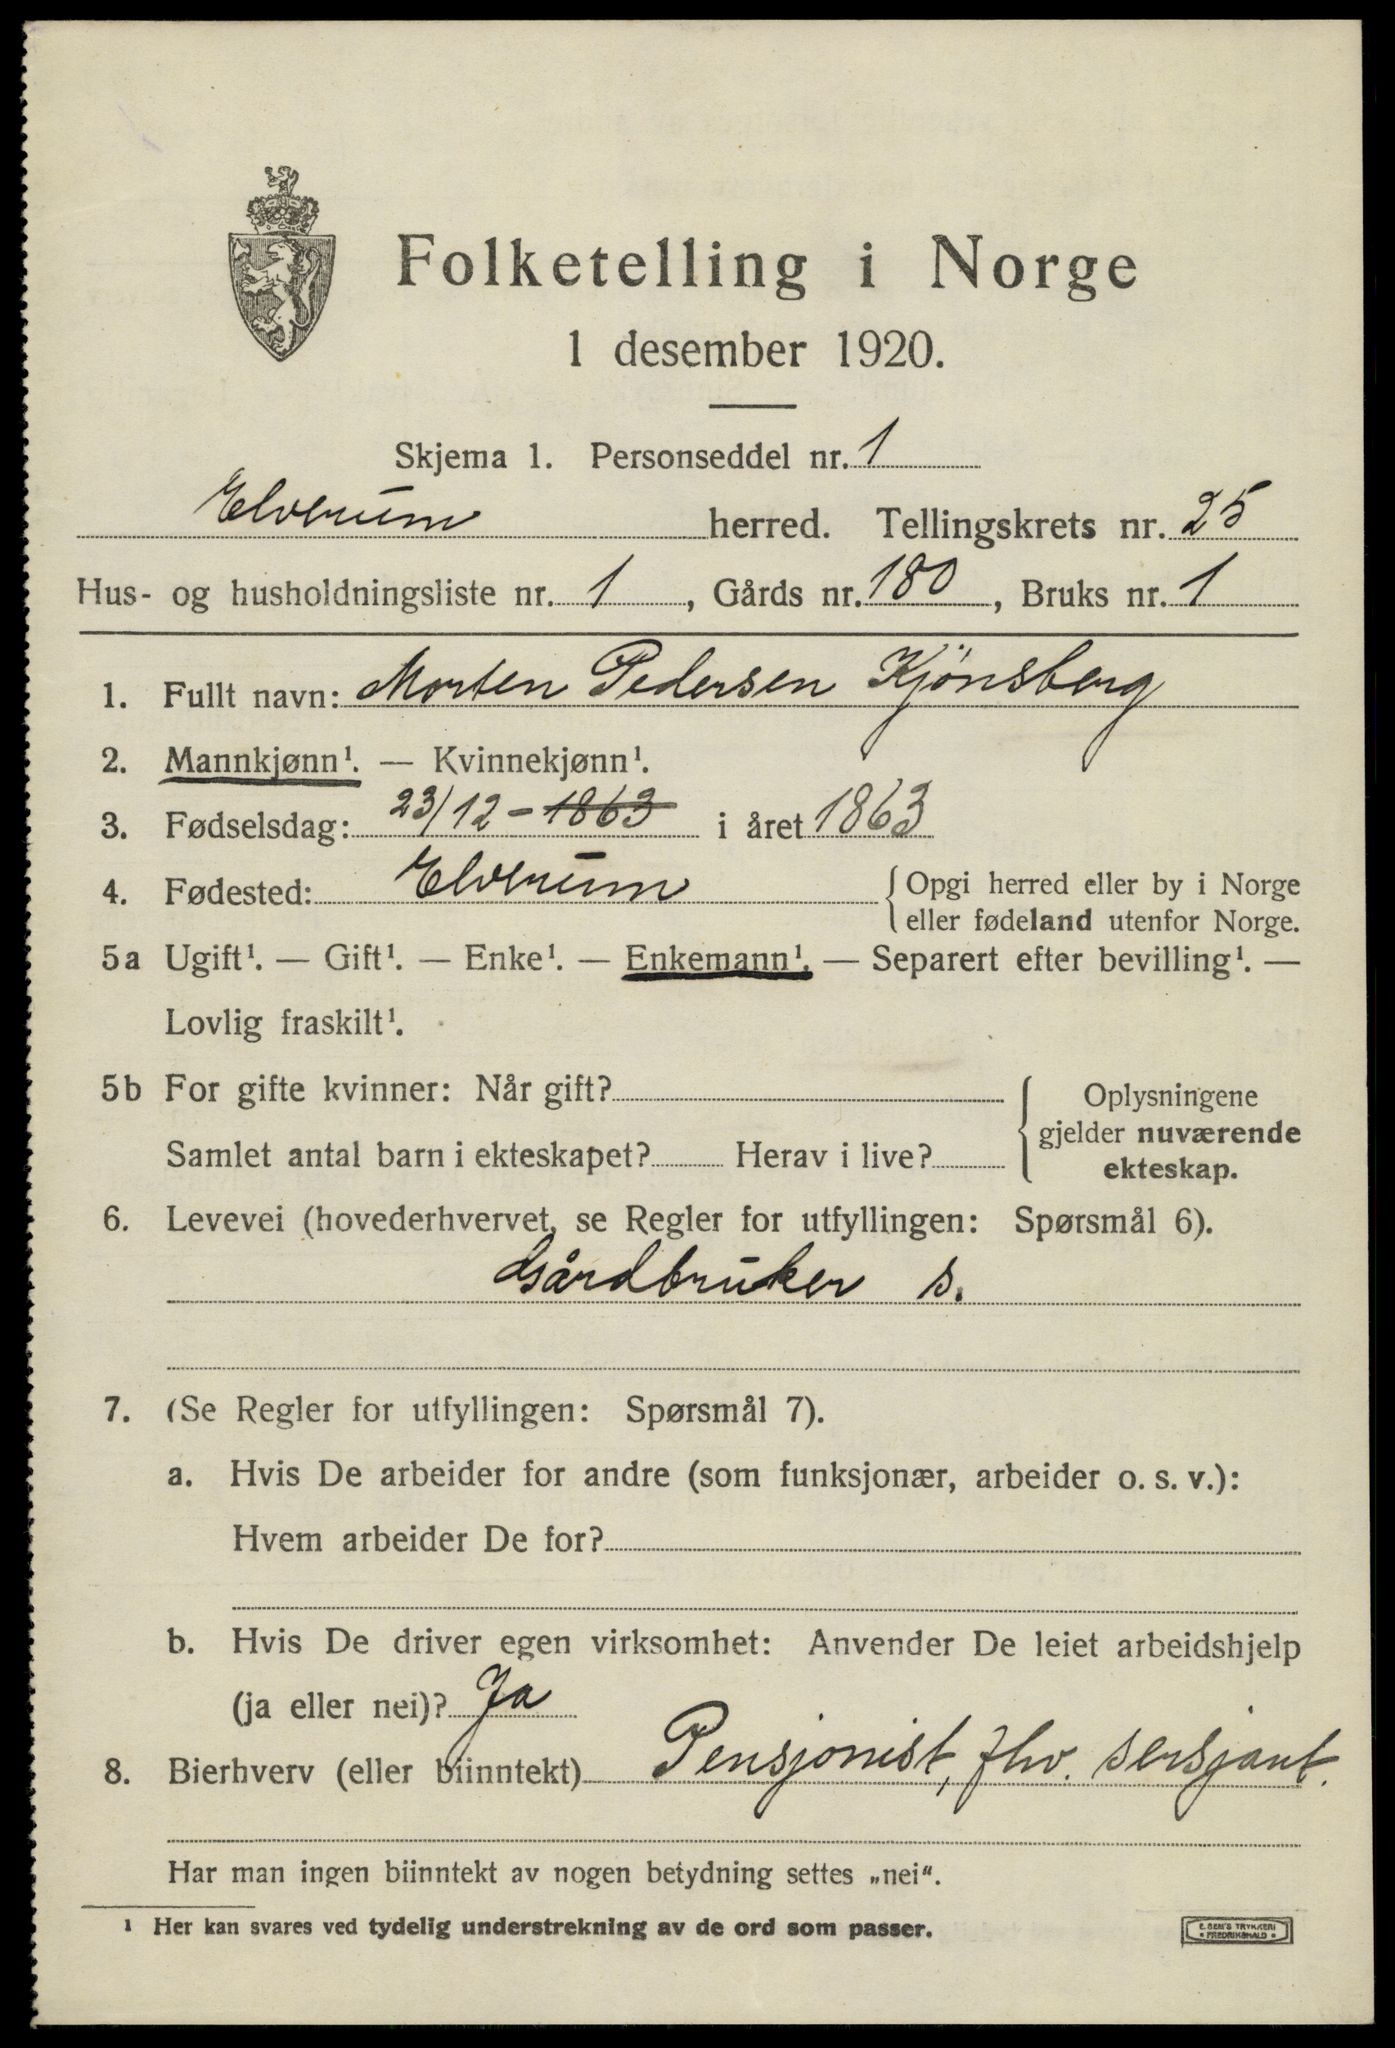 Folketelling i Norge
1 desember 1920.
Skjema 1. Personseddel nr. 1
Elverum herred. Tellingskrets nr. 25
Hus- og husholdningsliste nr. 1, Gårds nr. 180, Bruks nr. 1
1. Fullt navn: Morten Pedersen Kjönsberg
2. Mannkjønn¹. — Kvinnekjønn¹.
3. Fødselsdag: 23/12 - 1863 i året 1863
4. Fødested: Elverum {Opgi herred eller by i Norge
eller fødeland utenfor Norge.
5a Ugift¹. — Gift¹. — Enke¹. — Enkemann¹. — Separert efter bevilling¹. —
Lovlig fraskilt¹.
5b For gifte kvinner: Når gift?
Samlet antal barn i ekteskapet? Herav i live?
{Oplysningene
gjelder nuværende
ekteskap.
6. Levevei (hovederhvervet, se Regler for utfyllingen: Spørsmål 6).
Gårdbruker s.
7. (Se Regler for utfyllingen: Spørsmål 7).
a. Hvis De arbeider for andre (som funksjonær, arbeider o. s. v.):
Hvem arbeider De for?
b. Hvis De driver egen virksomhet: Anvender De leiet arbeidshjelp
(ja eller nei)? Ja
8. Bierhverv (eller biinntekt) Pensjonist, fhv. sersjant.
Har man ingen biinntekt av nogen betydning settes „nei“.
¹ Her kan svares ved tydelig understrekning av de ord som passer.
E. SEM'S TRYKKERI
FREDRIKSHALD